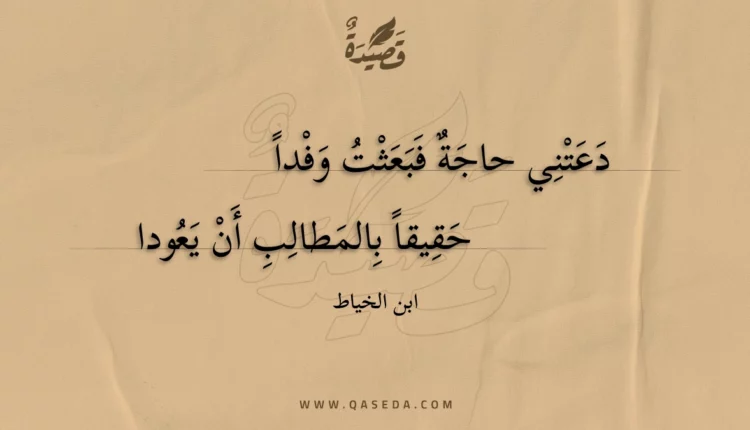 قَصِيْدَةٌ
دَعَتْنِي حاجَةٌ فَبَعَثْتُ وَفْداً
حَقِيقاً بِالمَطالِبِ أَنْ يَعُودا
ابن الخياط
WWW.QASEDA.COM